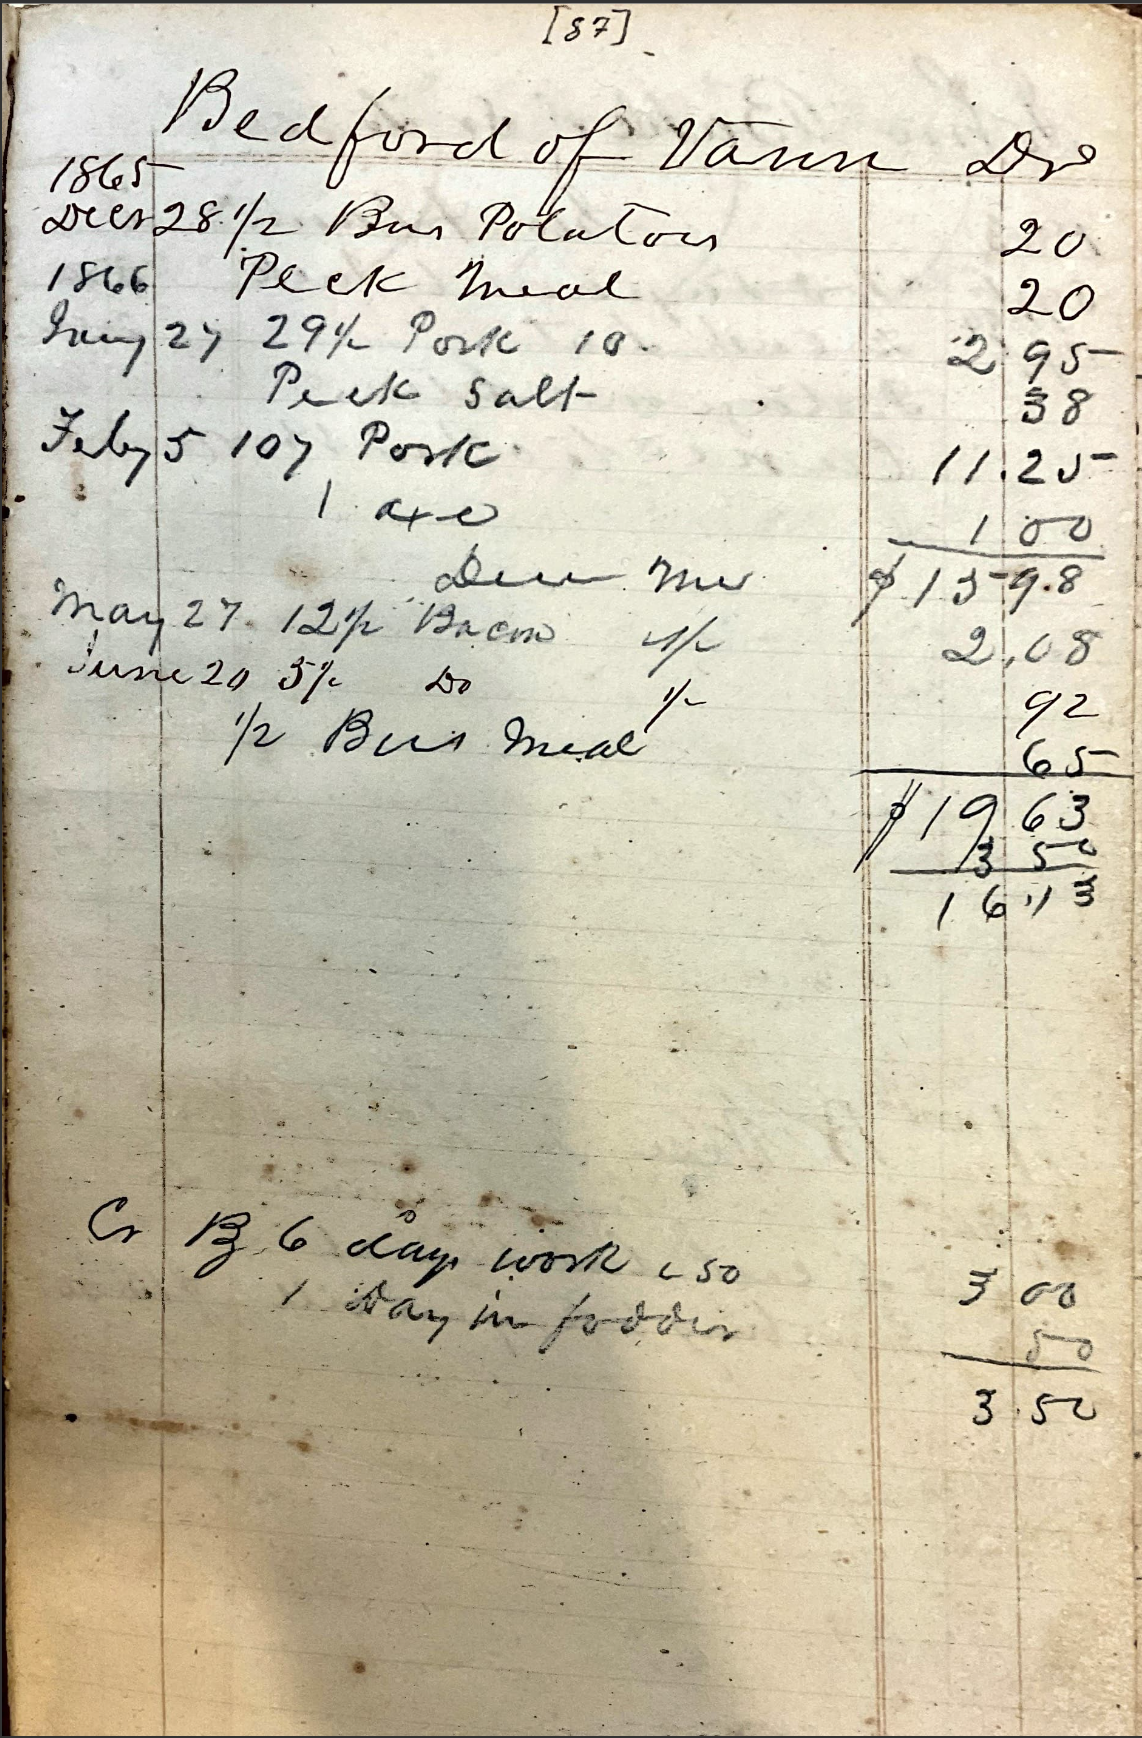 [87]
Bedford of Vann Dr
1865
Decr 28 1/2 Bus Potatoes 20
1866 Peck Meal 20
Jany 27 29½ Pork 10 2 95
Peck Salt 38
Feby 5 107 Pork 11.25
1 axe 1 00
Due Me $15 98
May 27 12½ Bacon 2.08
June 20 5½ Do 92
1/2 Bus Meal 65
$19 63
3 50
16.13
Cr By 6 days work 50 3 00
1 Day in fodder 50
3.50